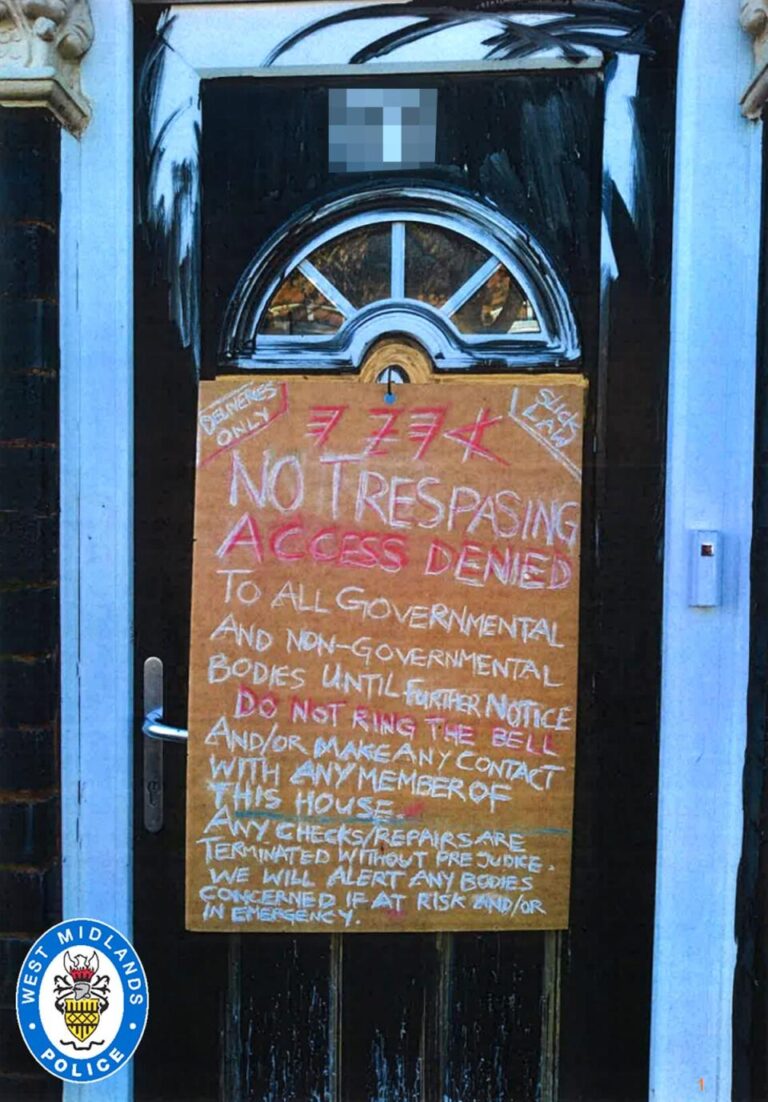 DELIVERIES
ONLY
LAW
NO TRESPASING
ACCESS DENIED
TO ALL GOVERNMENTAL
AND NON-GOVERNMENTAL
BODIES UNTIL FURTHER NOTICE
DO NOT RING THE BELL
AND/OR MAKE ANY CONTACT
WITH ANY MEMBER OF
THIS HOUSE.
ANY CHECKS/REPAIRS ARE
TERMINATED WITHOUT PREJUDICE.
WE WILL ALERT ANY BODIES
CONCERNED IF AT RISK AND/OR
IN EMERGENCY.
WEST MIDLANDS
POLICE
1